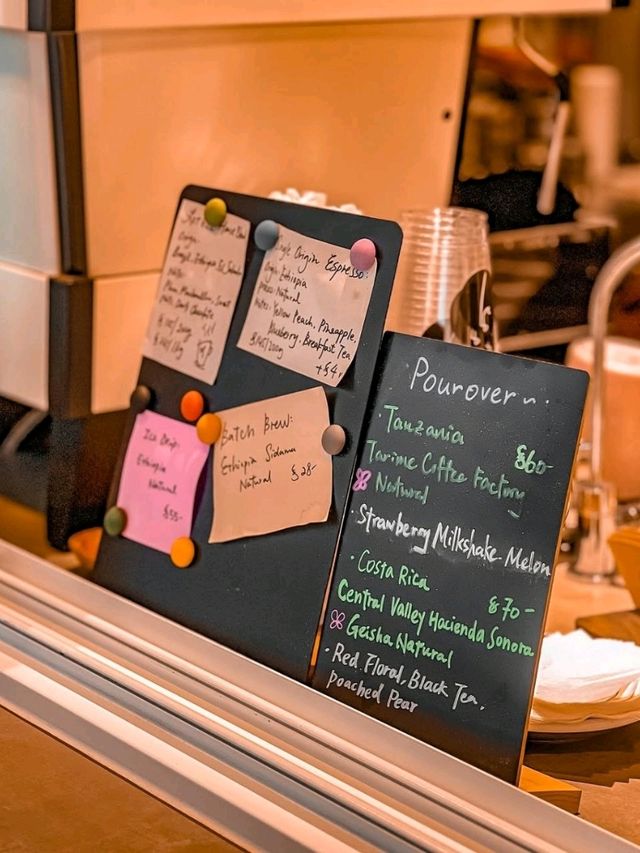 Origin:
Brazil, Ethiopia
Notes:
Single Origin Espresso:
Origin: Ethiopia
Process: Natural
Notes: Yellow Peach, Pineapple,
Blueberry, Breakfast Tea
$145/200g
+$4
Ice Drip:
Ethiopia
Natural
$55-
Batch Brew:
Ethiopia Sidama
Natural $28-
Pourover~.
· Tanzania
$60-
Tarime Coffee Factory
Natural
Strawberry Milkshake. Melon
· Costa Rica
$70-
Central Valley Hacienda Sonora
Geisha Natural
· Red Floral, Black Tea,
poached Pear